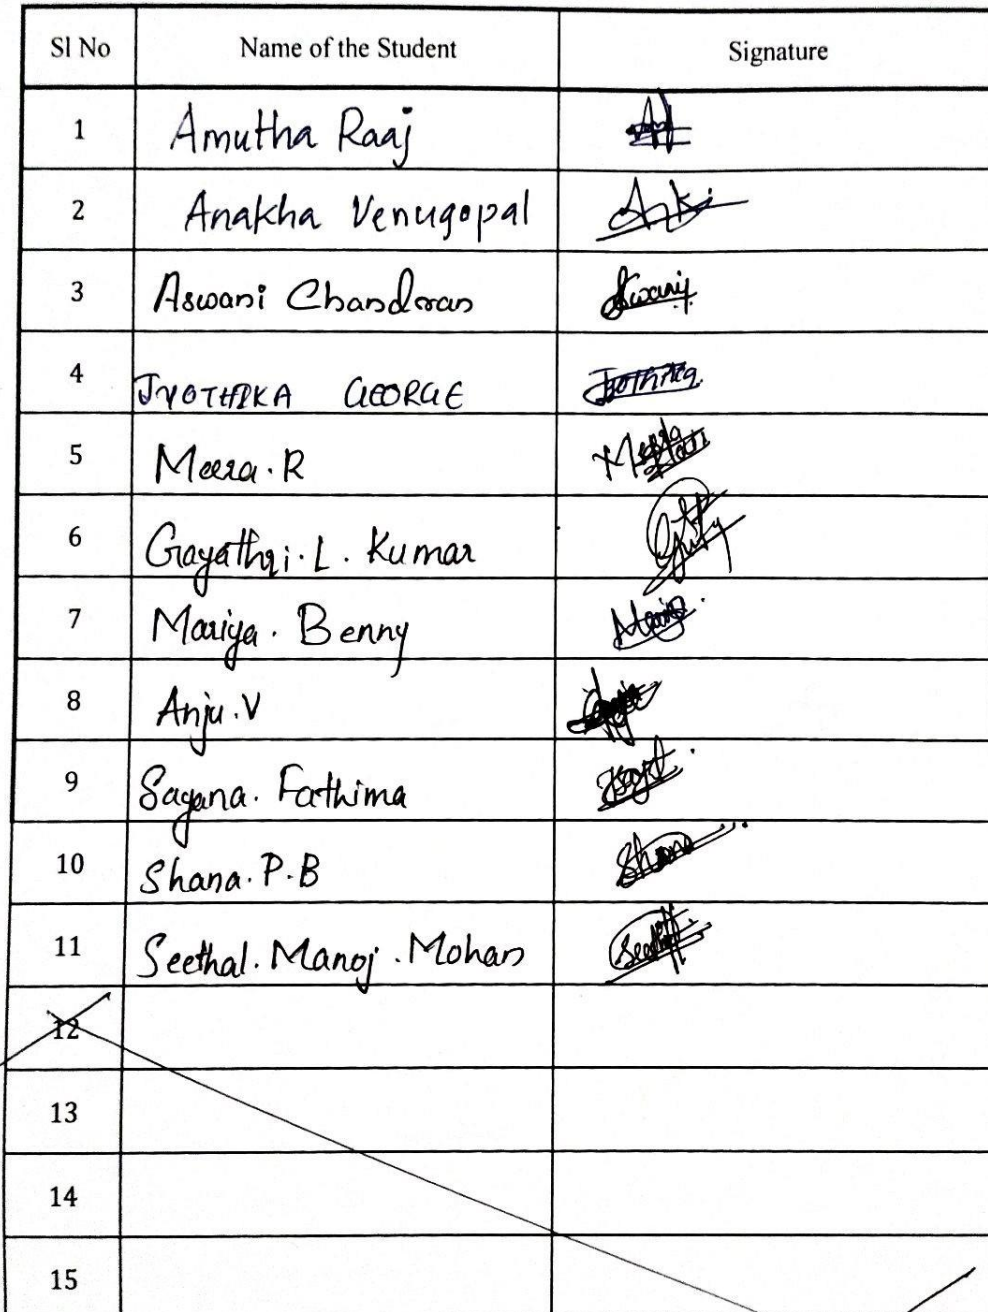 Sl No Name of the Student Signature
1 Amutha Raaj
2 Anakha Venugopal
3 Aswani Chandran Aswani
4 JYOTHIKA GEORGE Jyothika
5 Meera. R Meera
6 Gayathri. L. Kumar
7 Mariya. Benny
8 Anju. V
9 Sayana. Fathima
10 Shana. P. B Shana
11 Seethal. Manoj. Mohan
12
13
14
15